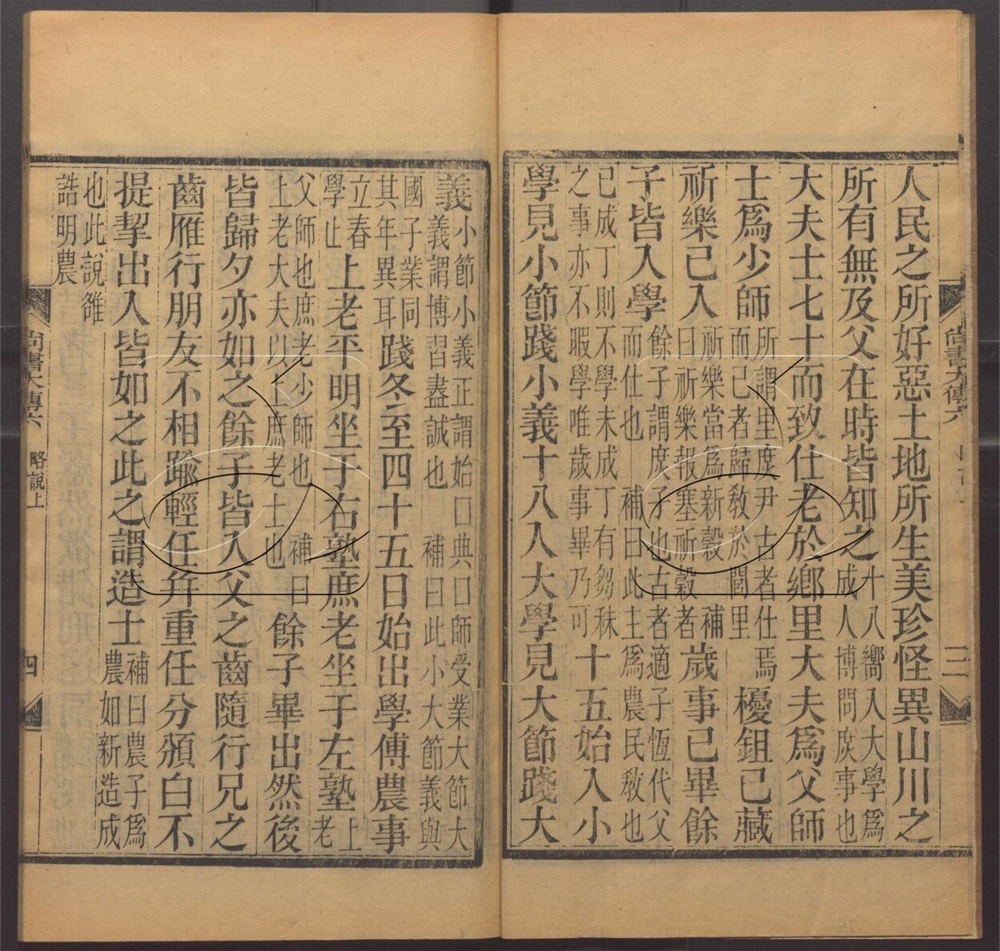 人民之所好惡土地所生美珍怪異山川之
所有無及父在時皆知之十八嚮入大學爲
成人博問庶事也
大夫士七十而致仕老於鄉里大夫爲父師
士爲少師所謂里庶尹古者仕焉
而已者歸敎於閭里耰鉏已藏
祈樂已入祈樂當爲新穀 補
曰祈樂報塞祈穀者歲事已畢餘
子皆入學餘子謂庶子也古者適子恆代父
而仕也 補曰此主爲農民敎也
已成丁則不學未成丁有芻秣
之事亦不暇學唯歲事畢乃可十五始入小
學見小節踐小義十八入大學見大節踐大
尚書大傳六
略說上
四
義小節小義正謂始口典口師受業大節大
義謂博習盡誠也 補曰此小大節義與
國子業同
其年異耳踐冬至四十五日始出學傅農事
立春
學止上老平明坐于右塾庶老坐于左塾上
老
父師也庶老少師也 補曰
上老大夫以上庶老士也餘子畢出然後
皆歸夕亦如之餘子皆入父之齒隨行兄之
齒雁行朋友不相踰輕任幷重任分頒白不
提挈出入皆如之此之謂造士補曰農子爲
農如新造成
也此說雒
誥明農